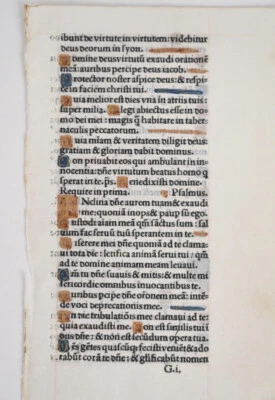 ibunt de virtute in virtutem: videbitur
deus deorum in syon.
Domine deus virtutū exaudi orationē
meā: auribus percipe deus iacob.
Protector noster aspice deus: & respi-
ce in faciem christi tui.
Quia melior est dies vna in atriis tuis:
super milia. Elegi abiectus esse in do
mo dei mei: magis q̄ habitare in taber-
naculis peccatorum.
Quia mīam & veritatem diligit deus:
gratiam & gloriam dabit dominus.
Non priuabit eos qui ambulant in in-
nocentia: dn̄e virtutum beatus homo q
sperat in te. ps. Benedixisti domine.
Require in prima. Psalmus.
INclina dn̄e aurem tuam & exaudi
me: quoniā inops & paup sū ego.
Custodi aīam meā qm̄ sanctus sum: sal-
uum fac seruū tuū sperantem in te.
Miserere mei dn̄e quoniā ad te clama-
ui tota die: letifica animā serui tui: qm̄
ad te domine animam meam leuaui.
Qm̄ tu dn̄e suauis & mitis: & multe mi
sericordie omnibus inuocantibus te.
Auribus pcipe dn̄e orōnem meā: intē-
de voci deprecationis mee.
In die tribulatiōis mee clamaui ad te:
quia exaudisti me. Non est similis tui ī
diis dn̄e: & non est secūdum opera tua.
Oēs gētes quascūq; fecisti veniēt & ado
rabūt corā te dn̄e: & glīficabūt nomen
G.i.